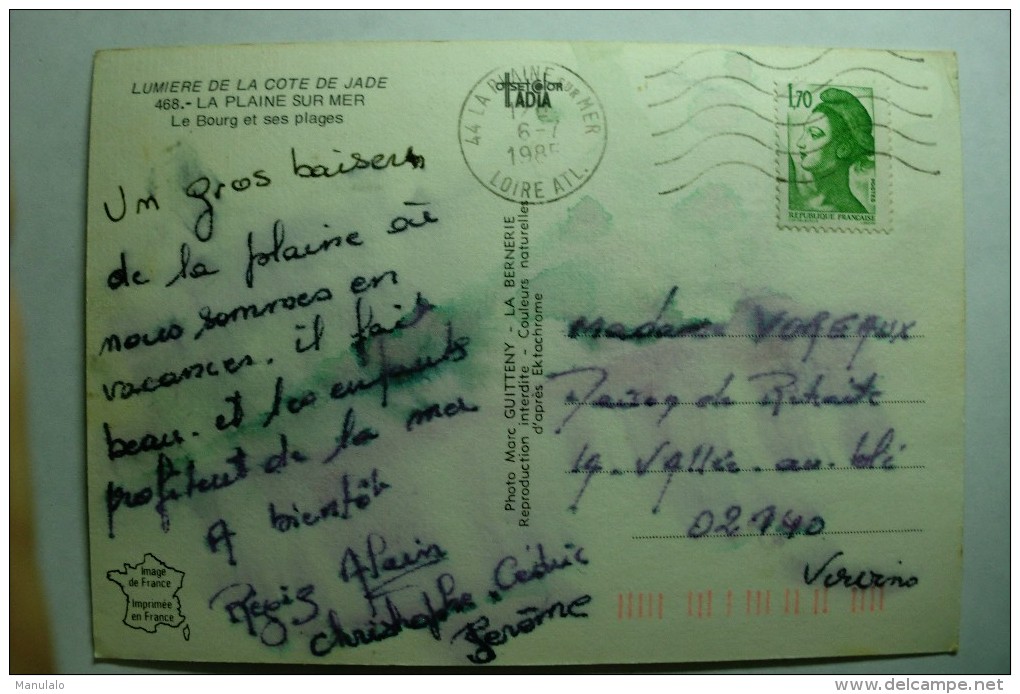 LUMIERE DE LA COTE DE JADE
468.- LA PLAINE SUR MER
Le Bourg et ses plages
Un gros baisers
de la plaine où
nous sommes en
vacances. il fait
beau. et les enfants
profitent de la mer
A bientôt
Régis Alain
christophe. Cédric
Jerôme
Image
de France
Imprimée
en France
Photo Marc GUITTENY - LA BERNERIE
Reproduction interdite - Couleurs naturelles
d'après Ektachrome
OFFSET COLOR
44 LA PLAINE SUR MER
6-7
1985
LOIRE ATL.
1,70
POSTES
REPUBLIQUE FRANÇAISE
Madame
Maison de Retraite
19. Vallée. au. blé
02140
Vervins
Manulalo
delcampe.net